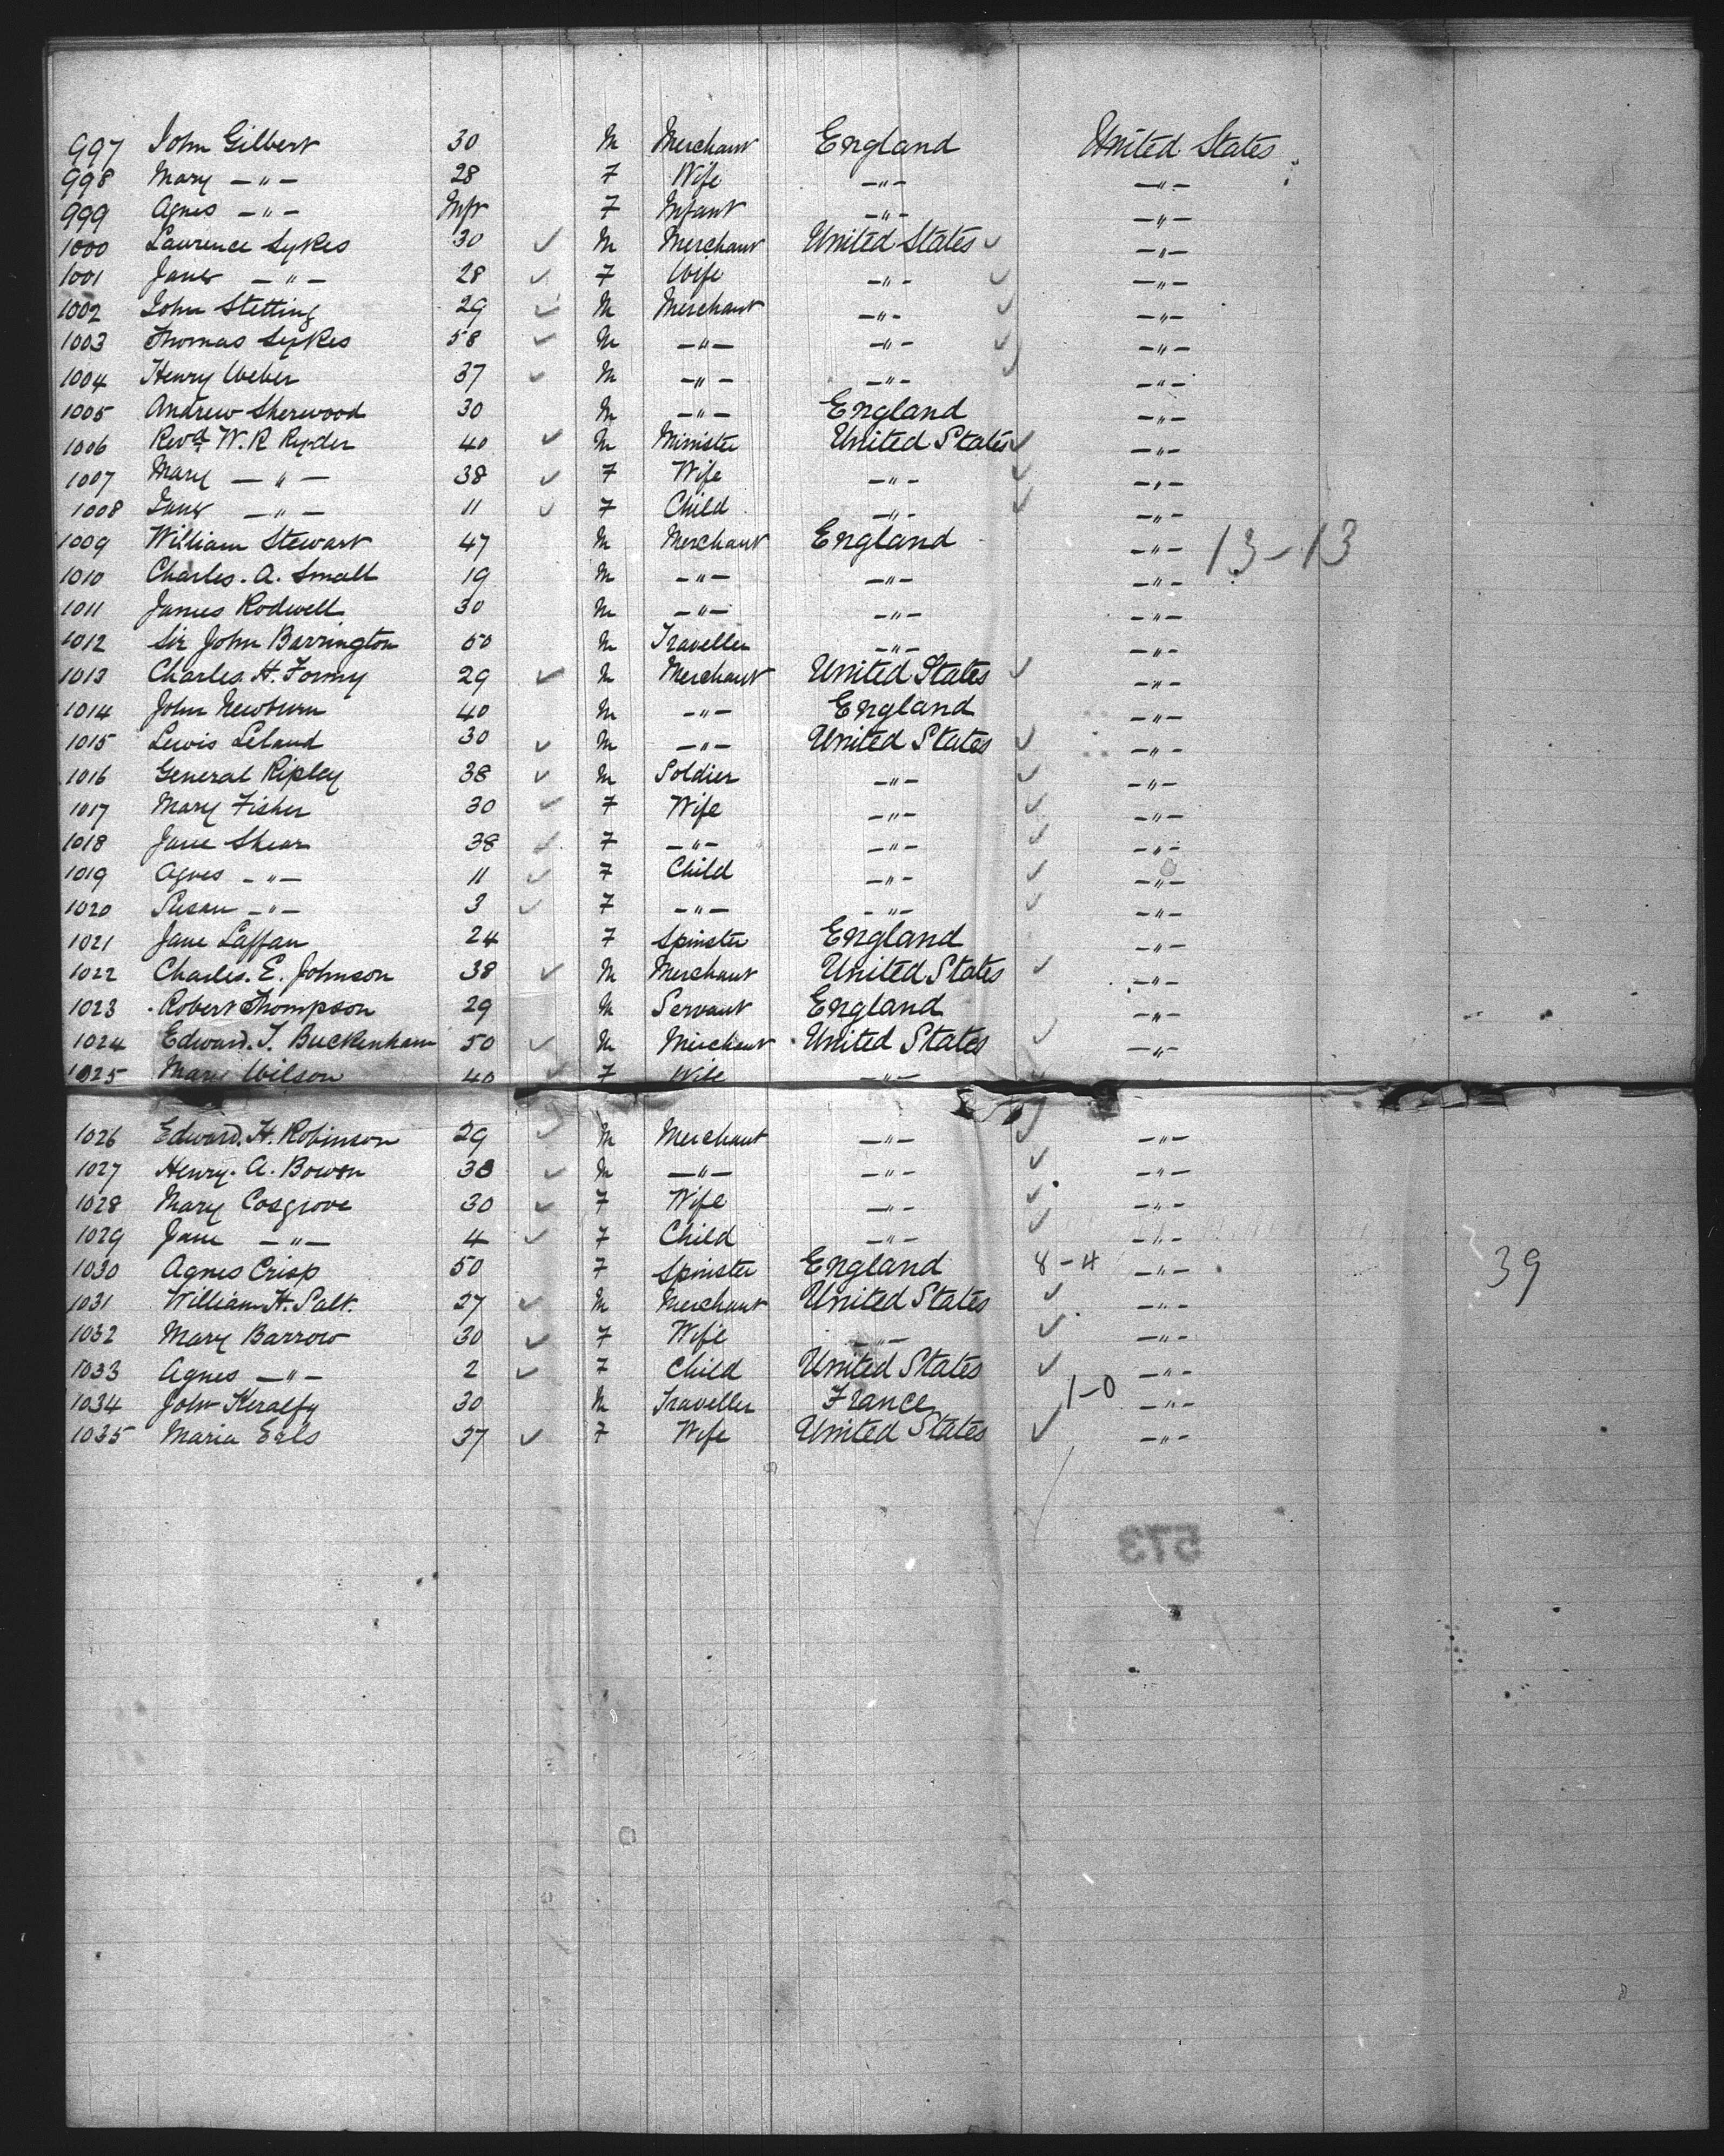 997 John Gilbert 30 M Merchant England United States
998 Mary —"— 28 F Wife —"— —"—
999 Agnes —"— Inft F Infant —"— —"—
1000 Lawrence Sykes 30 ✓ M Merchant United States ✓ —"—
1001 Jane —"— 28 ✓ F Wife —"— ✓ —"—
1002 John Stetting 29 ✓ M Merchant —"— ✓ —"—
1003 Thomas Sykes 58 ✓ M —"— —"— ✓ —"—
1004 Henry Weber 37 ✓ M —"— —"— ✓ —"—
1005 Andrew Sherwood 30 M —"— England —"—
1006 Revd W. R Ryder 40 ✓ M Minister United States ✓ —"—
1007 Mary —"— 38 ✓ F Wife —"— ✓ —"—
1008 Jane —"— 11 ✓ F Child —"— ✓ —"—
1009 William Stewart 47 M Merchant England —"— 13-13
1010 Charles. A. Small 19 M —"— —"— —"—
1011 James Rodwell 30 M —"— —"— —"—
1012 Sir John Barrington 50 M Traveller —"— —"—
1013 Charles. H. 29 ✓ M Merchant United States ✓ —"—
1014 John Newburn 40 M —"— England —"—
1015 Lewis Leland 30 ✓ M —"— United States ✓ —"—
1016 General Ripley 38 ✓ M Soldier —"— ✓ —"—
1017 Mary Fisher 30 ✓ F Wife —"— ✓ —"—
1018 Jane Shear 38 ✓ F —"— —"— ✓ —"—
1019 Agnes —"— 11 ✓ F Child —"— ✓ —"—
1020 Susan —"— 3 ✓ F —"— —"— ✓ —"—
1021 Jane Laffan 24 F Spinster England —"—
1022 Charles. E. Johnson 38 ✓ M Merchant United States ✓ —"—
1023 Robert Thompson 29 M Servant England —"—
1024 Edward. T. Buckenham 50 ✓ M Merchant United States ✓ —"—
1025 Mary Wilson 40 ✓ F Wife —"— ✓
1026 Edward. H. Robinson 29 ✓ M Merchant —"— ✓ —"—
1027 Henry. A. Bowen 38 ✓ M —"— —"— ✓ —"—
1028 Mary Cosgrove 30 ✓ F Wife —"— ✓ —"—
1029 Jane —"— 4 ✓ F Child —"— ✓ —"—
1030 Agnes Crisp 50 F Spinster England 8-4 —"— 39
1031 William H. Salt. 27 ✓ M Merchant United States ✓ —"—
1032 Mary Barrow 30 ✓ F Wife —"— ✓ —"—
1033 Agnes —"— 2 ✓ F Child United States ✓ —"—
1034 John Keralfy 30 M Traveller France 1-0 —"—
1035 Maria Eels 37 ✓ F Wife United States ✓ —"—
573